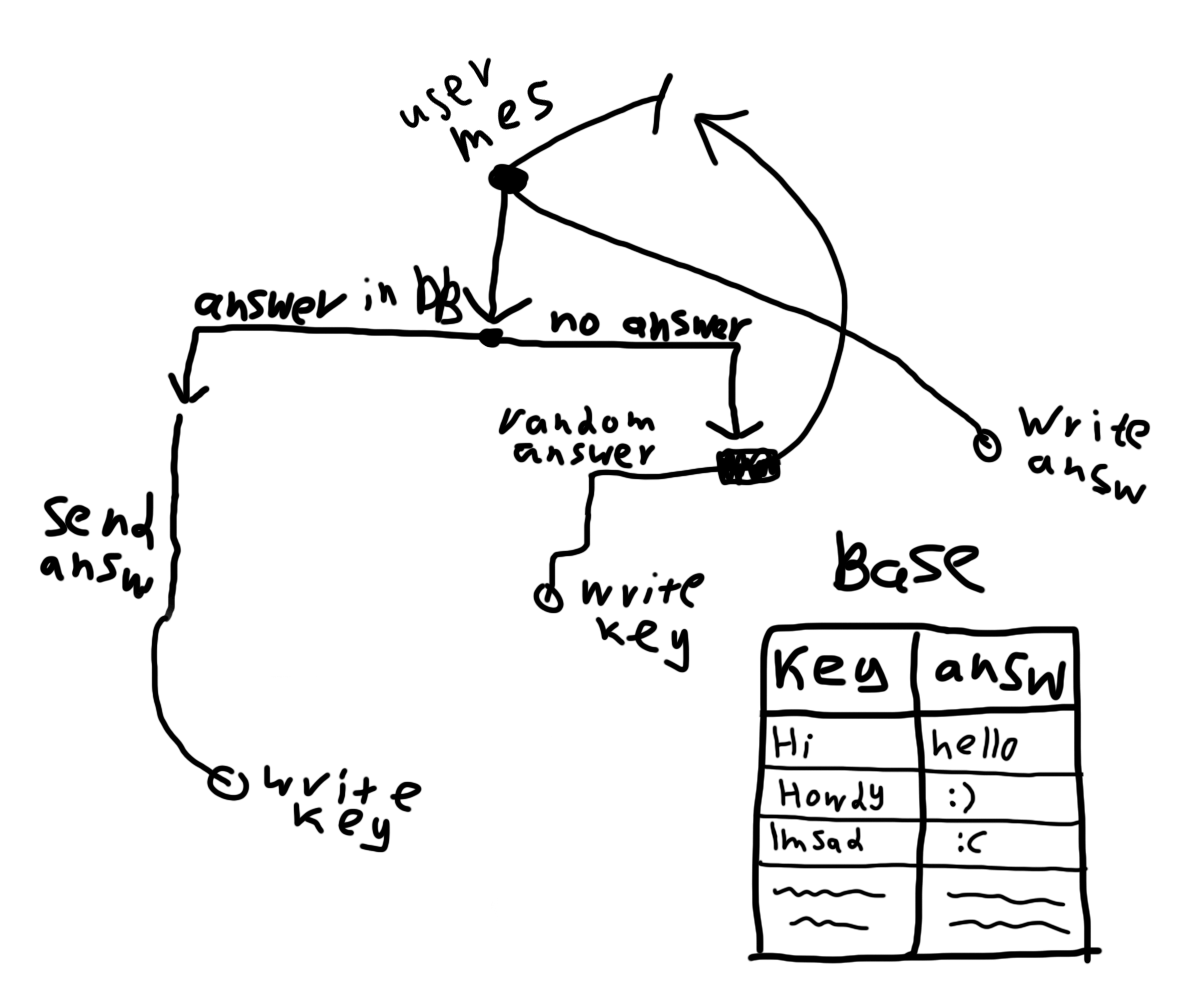 user
mes
answer in DB
no answer
random
answer
Write
answ
Send
answ
write
key
write
key
Base
Key answ
Hi hello
Howdy :)
Im sad :c